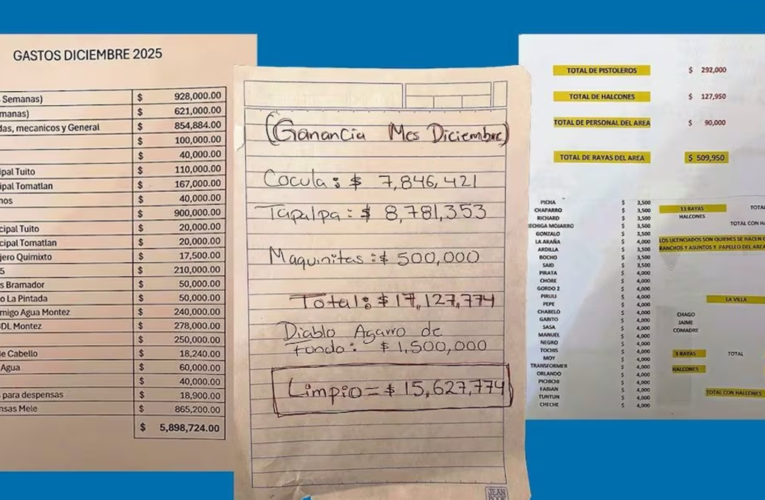 GASTOS DICIEMBRE 2025
Semanas) $ 928,000.00
manas) $ 621,000.00
das, mecanicos y General $ 854,884.00
$ 100,000.00
$ 40,000.00
ipal Tuito $ 110,000.00
ipal Tomatlan $ 167,000.00
nos $ 40,000.00
$ 900,000.00
cipal Tuito $ 20,000.00
cipal Tomatlan $ 20,000.00
jero Quimixto $ 17,500.00
S $ 210,000.00
s Bramador $ 50,000.00
o La Pintada $ 50,000.00
migo Agua Montez $ 240,000.00
GDL Montez $ 278,000.00
$ 250,000.00
e Cabello $ 18,240.00
Agua $ 60,000.00
$ 40,000.00
para despensas $ 18,900.00
nsas Mele $ 865,200.00
$ 5,898,724.00
(Ganancia Mes Diciembre)
Cocula: $ 7,846,421
Tapalpa: $ 8,781,353
Maquinitas: $ 500,000
Total: $ 17,127,774
Diablo Agarro de
fondo: $ 1,500,000
Limpio = $ 15,627,774
TOTAL DE PISTOLEROS $ 292,000
TOTAL DE HALCONES $ 127,950
TOTAL DE PERSONAL DEL AREA $ 90,000
TOTAL DE RAYAS DEL AREA $ 509,950
PICHA $ 3,500
CHAPARRO $ 3,500
RICHARD $ 3,500
ECHIGA MOJARRO $ 3,500
GONZALO $ 3,500
LA ARAÑA $ 4,000
ARDILLA $ 3,500
BOCHO $ 3,500
SAID $ 3,500
PIRATA $ 4,000
CHORE $ 4,000
GORDO 2 $ 4,000
PIRULI $ 4,000
PEPE $ 4,000
CHABELO $ 4,000
GABITO $ 4,000
SASA $ 4,000
MANUEL $ 4,000
NEGRO $ 4,000
TOCHIS $ 4,000
MOY $ 4,000
TRANSFORMER $ 4,000
ORLANDO $ 4,000
PICHICHI $ 4,000
FABIAN $ 4,000
TUNTUN $ 4,000
CHECHE $ 4,000
33 RAYAS TOTA
HALCONES
TOTAL CON HA
LOS LICENCIADOS SON QUIENES SE HACEN C
RANCHOS Y ASUNTOS Y PAPELEO DEL AREA
LA VILLA
CHAGO
JAIME
COMADRE
3 RAYAS TOTAL
HALCONES
TOTAL CON HALCONES